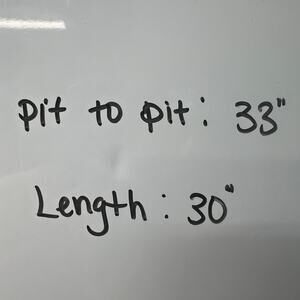 pit to pit: 33"
Length: 30"